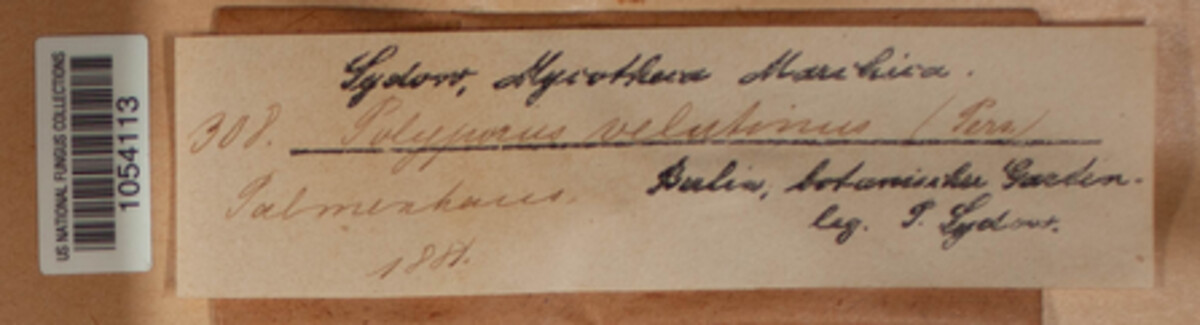 US NATIONAL FUNGUS COLLECTIONS
1054113
Sydow, Mycotheca Marchica.
308. Polyporus velutinus (Pers)
Palmenhaus. Berlin, botanischer Garten.
leg. P. Sydow.
1881.